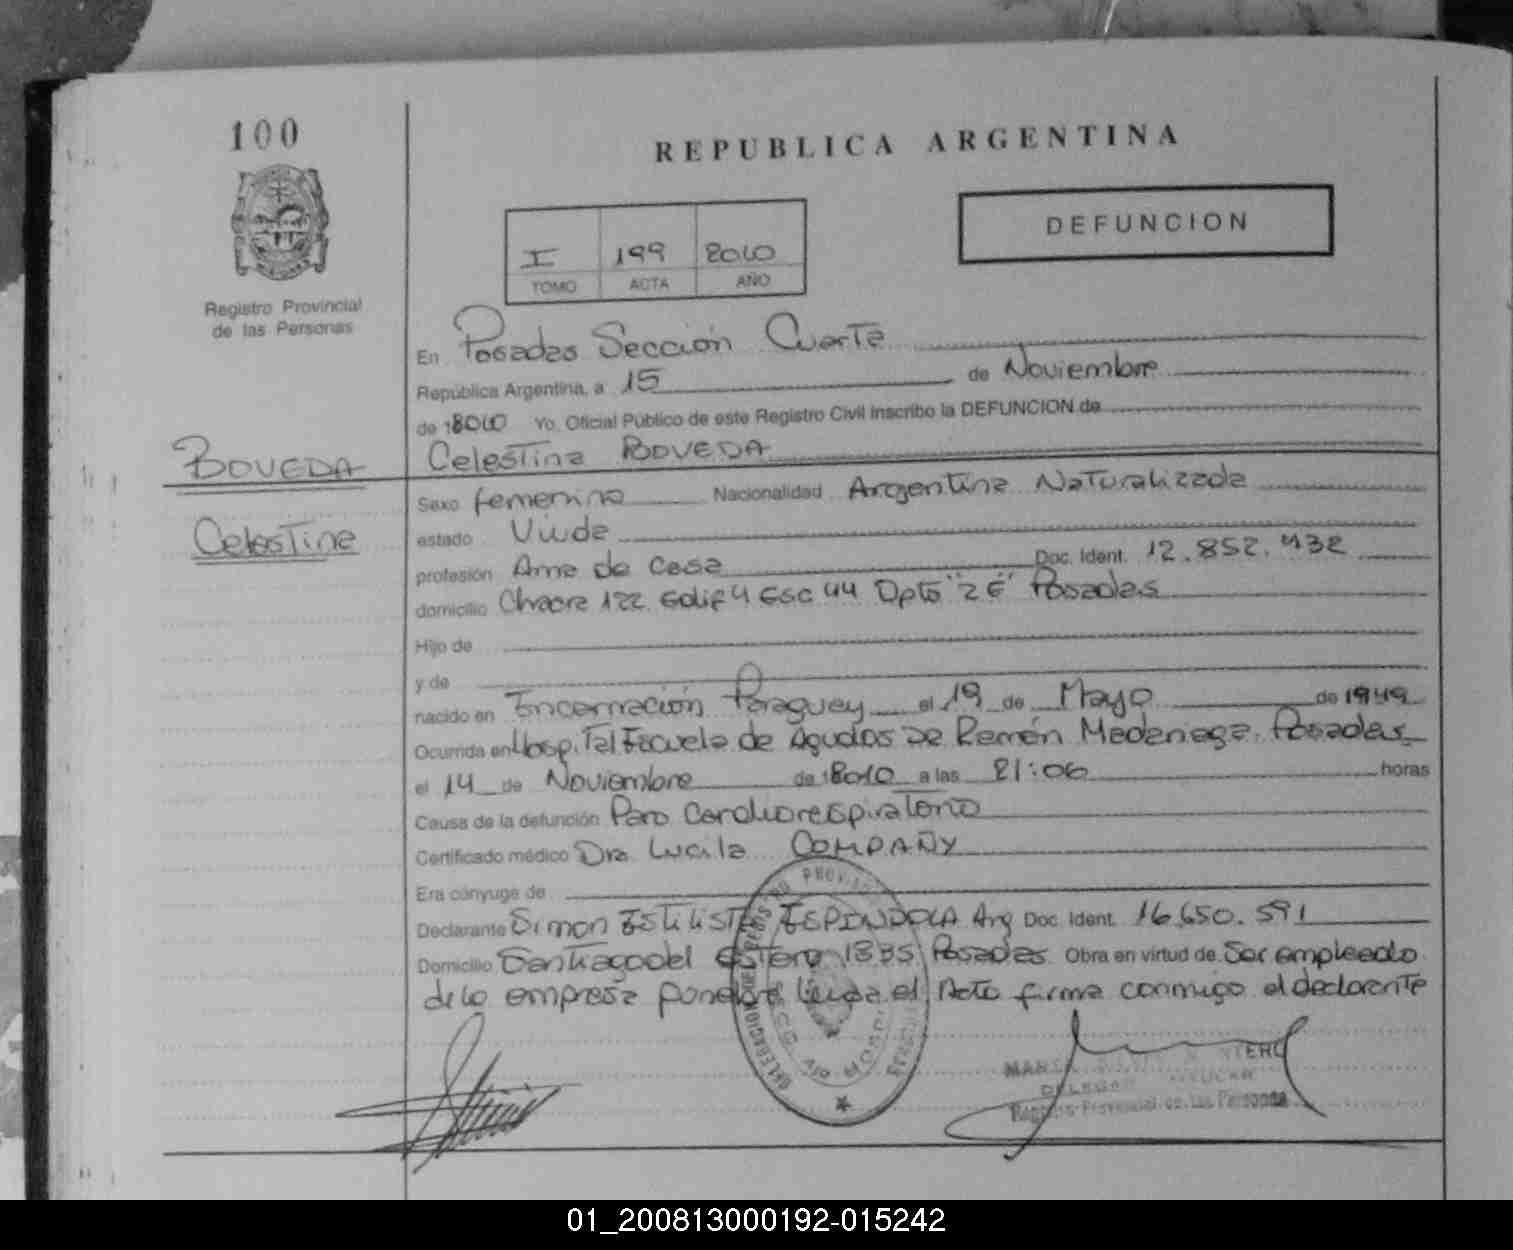 100
REPUBLICA ARGENTINA
DEFUNCION
I 199 2010
TOMO ACTA AÑO
Registro Provincial
de las Personas
En Posadas Sección Cuarta
República Argentina, a 15 de Noviembre
de 2010 Yo, Oficial Público de este Registro Civil inscribo la DEFUNCION de
BOVEDA
Celestina BOVEDA
Celestina
Sexo femenino Nacionalidad Argentina Naturalizada
estado Viuda
profesión Ama de Casa Doc. Ident. 12.852.432
domicilio Chacra 122 Edif 4 Esc 44 Dpto "2 E" Posadas
Hijo de
y de
nacido en Encarnación Paraguay el 19 de Mayo de 1949
Ocurrida en Hospital Escuela de Agudos DR Ramón Madariaga. Posadas
el 14 de Noviembre de 2010 a las 21:06 horas
Causa de la defunción Paro Cardiorespiratorio
Certificado médico Dra. Lucila COMPAÑY
Era cónyuge de
Declarante Simon ESPINDOLA Arg Doc. Ident. 16.650.591
Domicilio Santiago del Estero 1835 Posadas Obra en virtud de Ser empleado
de la empresa Leida el Acta firma conmigo el declarante
Registro Provincial de las Personas
01_200813000192-015242